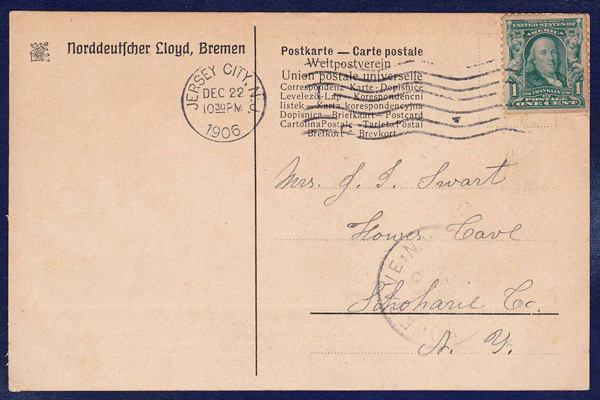 Norddeutscher Lloyd, Bremen
JERSEY CITY, N.J.
DEC 22
10 30 PM
1906
Postkarte — Carte postale
Weltpostverein
Union postale universelle
Correspondenz-Karte-Dopisnice
Levelező-Lap — Korespondencni
listek — Karta korespondencyjna
Dopisnica — Briefkaart — Postcard
CartolinaPostale — TarjetaPostal
Brefkort — Brevkort
UNITED STATES OF
AMERICA
FRANKLIN
1 1
ONE CENT
Mrs. J. I. Swart
Howes Cave
Schoharie Co.
N. Y.